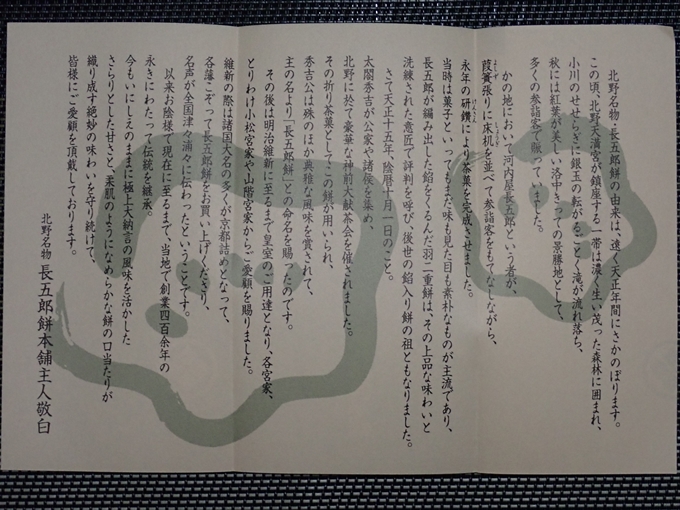 北野名物・長五郎餅の由来は、遠く天正年間にさかのぼります。
この頃、北野天満宮が鎮座する一帯は濃く生い茂った森林に囲まれ、
小川のせせらぎに銀玉の転がるごとく滝が流れ落ち、
秋には紅葉が美しい洛中きっての景勝地として、
多くの参詣客で賑っていました。
かの地において河内屋長五郎という者が、
葭簀張りに床机を並べて参詣客をもてなしながら、
永年の研鑽により茶菓を完成させました。
当時は菓子といってもまだ味も見た目も素朴なものが主流であり、
長五郎が編み出した餡をくるんだ羽二重餅は、その上品な味わいと
洗練された意匠で評判を呼び、後世の餡入り餅の祖ともなりました。
さて天正十五年、陰暦十月一日のこと。
太閤秀吉が公家や諸侯を集め、
北野に於て豪華な神前大献茶会を催されました。
その折り茶菓としてこの餅が用いられ、
秀吉公は殊のほか典雅な風味を賞されて、
主の名より「長五郎餅」との命名を賜ったのです。
その後は明治維新に至るまで皇室のご用達となり、各宮家、
とりわけ小松宮家や山階宮家からご愛顧を賜りました。
維新の際は諸国大名の多くが京都詰めとなって、
各藩こぞって長五郎餅をお買い上げくださり、
名声が全国津々浦々に伝わったということです。
以来お陰様で現在に至るまで、当地で創業四百余年の
永きにわたって伝統を継承。
今もいにしえのままに極上大納言の風味を活かした
さらりとした甘さと、柔肌のようになめらかな餅の口当たりが
織り成す絶妙の味わいを守り続けて、
皆様にご愛顧を頂戴しております。
北野名物 長五郎餅本舗主人敬白